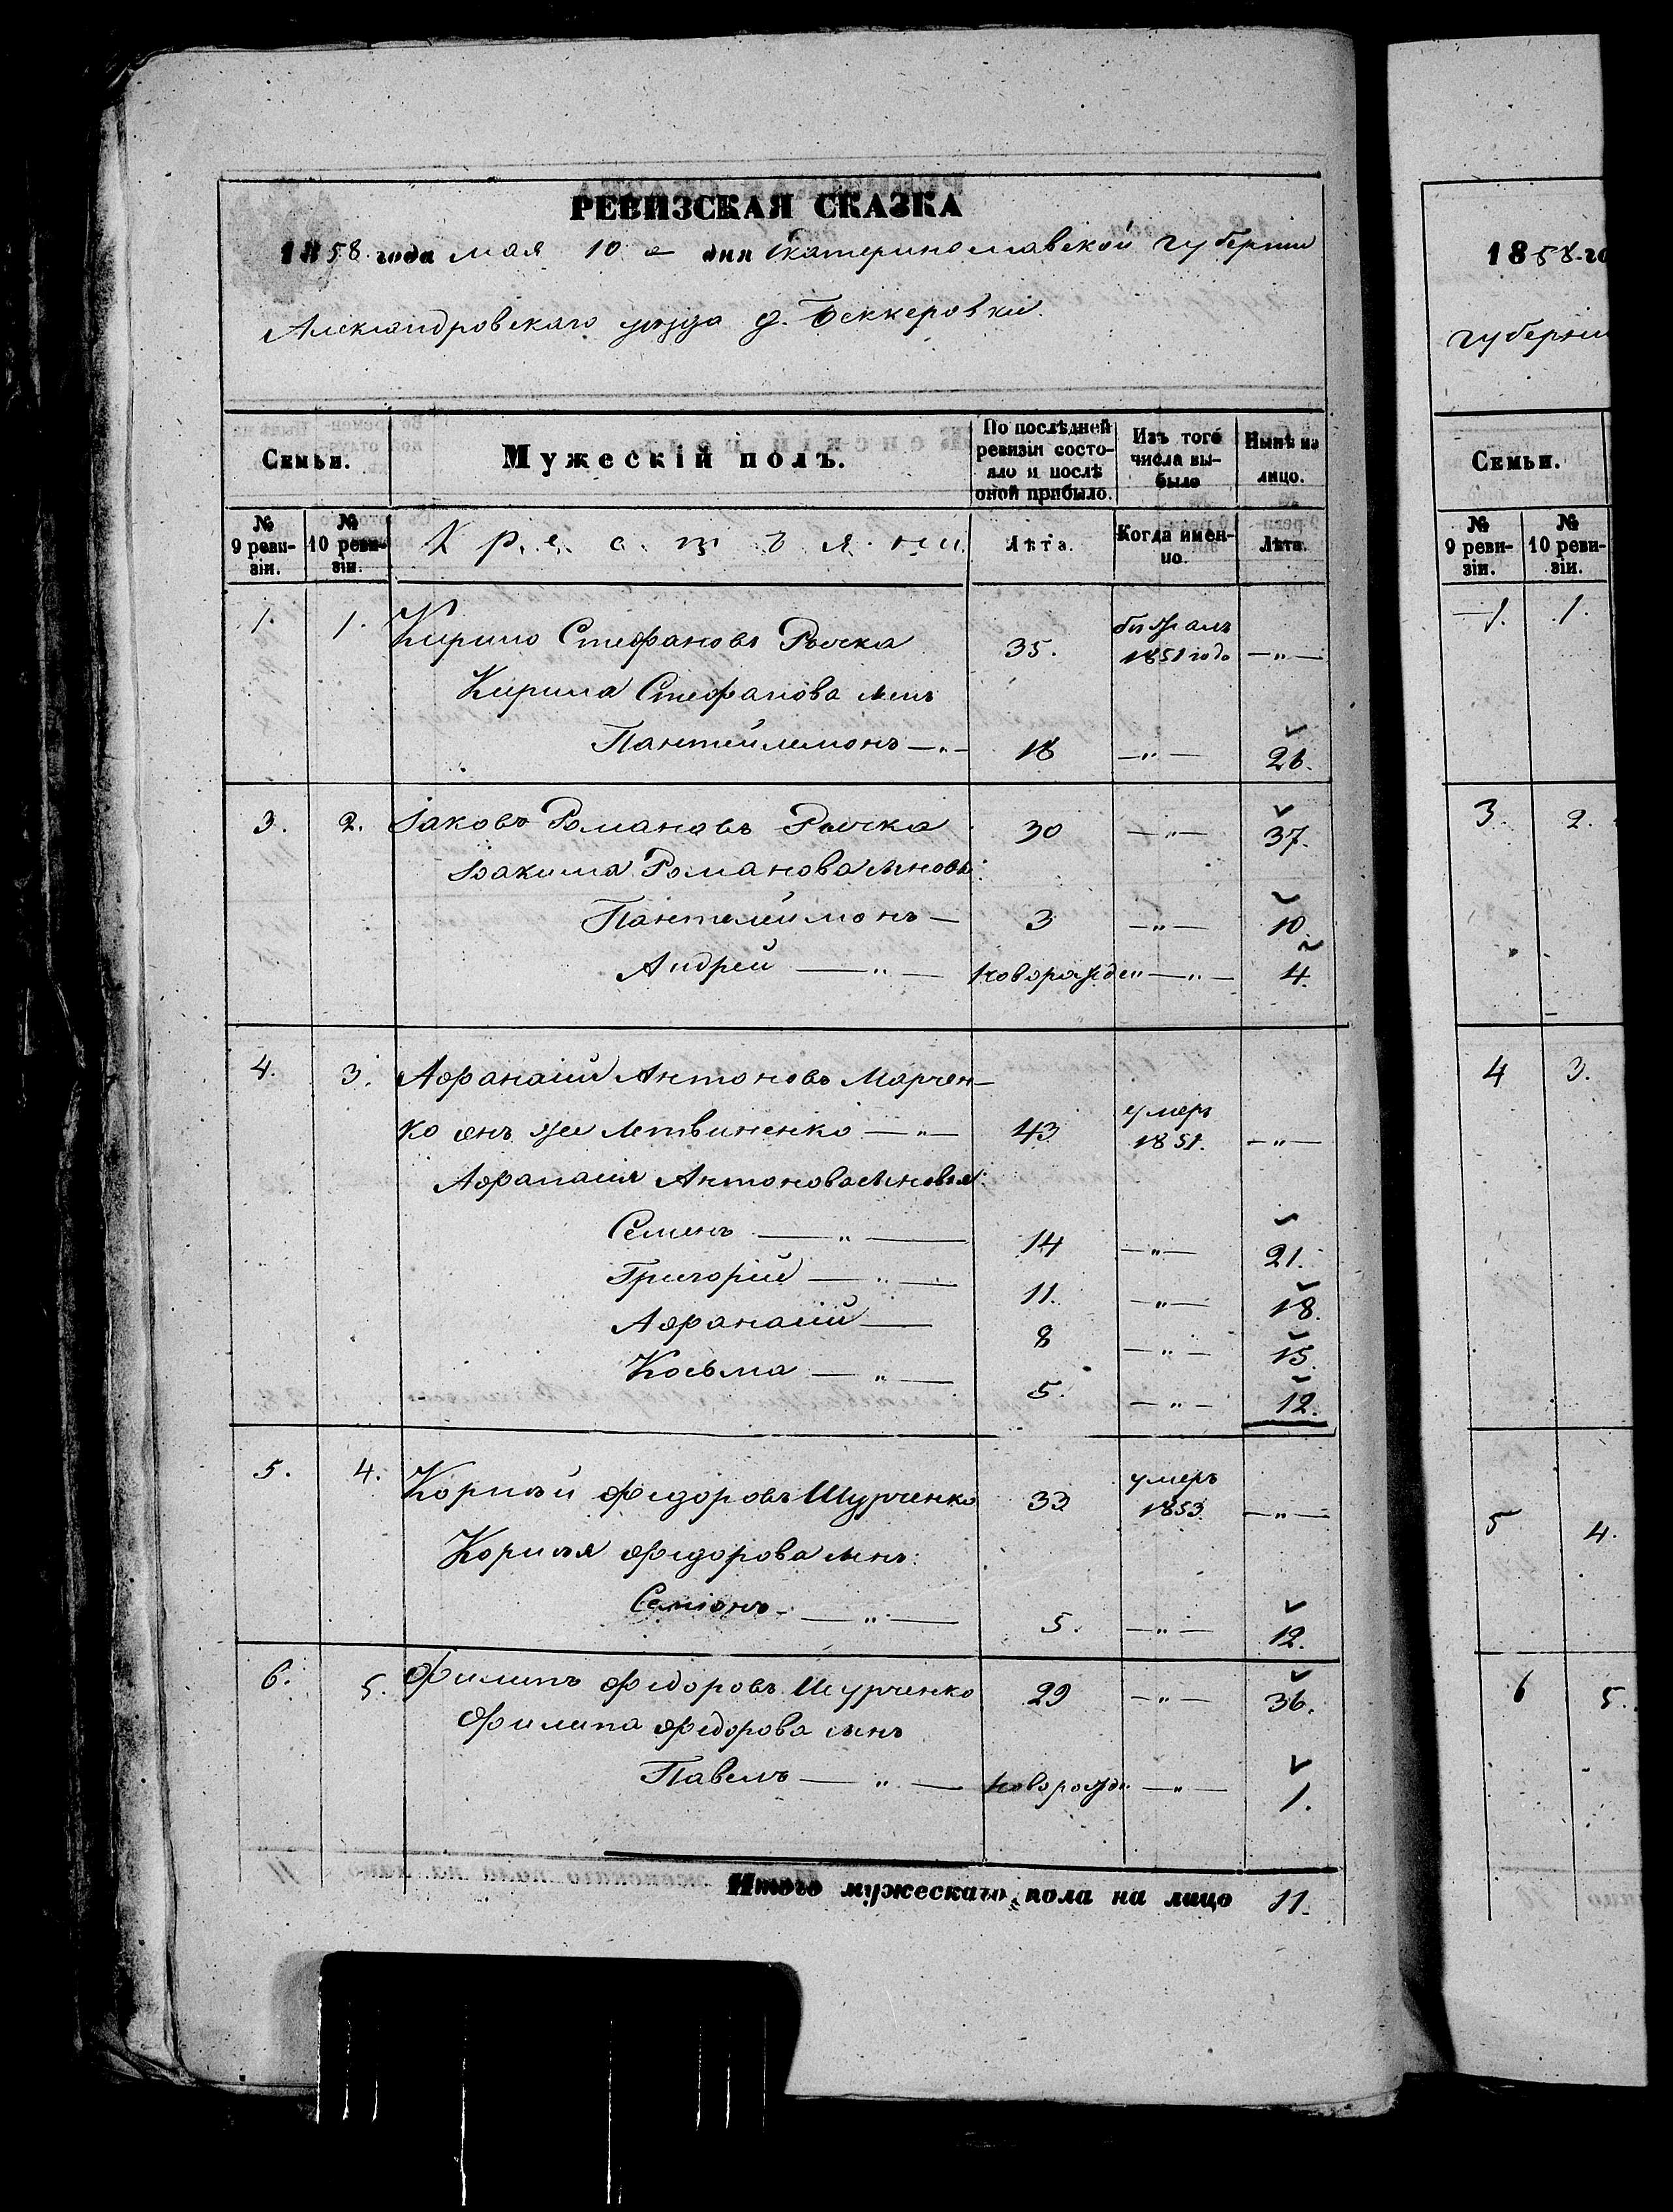 РЕВИЗСКАЯ СКАЗКА
1858 года мая 10 дня Екатеринославской губернии
Александровскаго уѣзда д. Беккеровки.
Семьи.
Мужескій полъ.
По послѣдней ревизіи состояло и послѣ оной прибыло.
Изъ того числа выбыло
Нынѣ на лицо.
№ 9 ревизіи.
№ 10 ревизіи.
Крестьяни
Лѣта.
Когда именно.
Лѣта.
1. 1. Кирило Стефановъ 35. 1851 года —„—
Кирила Стефанова сынъ
Пантейлемонъ —„— 18 —„—
3. 2. Іаковъ Романовъ 30 —„— 37.
Романова сыновья:
Пантелеимонъ — 3 —„— 10.
Андрей —„— новорожден —„— 4.
4. 3. Афанасій Антоновъ Марчен-
ко онъ же Летвиненко —„— 43 умеръ 1851. —„—
Афанасія Антонова сыновья:
Семенъ —„— 14 —„— 21.
Григорій —„— 11. —„— 18.
Афанасій — 8 —„— 15.
Косьма —„— 5. —„— 12.
5. 4. Корнѣй Федоровъ Шурченко 33 умеръ 1853 —„—
Корнѣя Федорова сынъ:
Семіонъ —„— 5. —„— 12.
6. 5. Филипъ Федоровъ Шурченко 29 —„— 36.
Филипа Федорова сынъ
Павелъ —„— новорожд. —„— 1.
Итого мужескаго пола на лицо 11.
1858 го
губерніи
Семьи.
№ 9 ревизіи.
№ 10 ревизіи.
1. 1.
3. 2.
4 3.
5 4.
6 5.